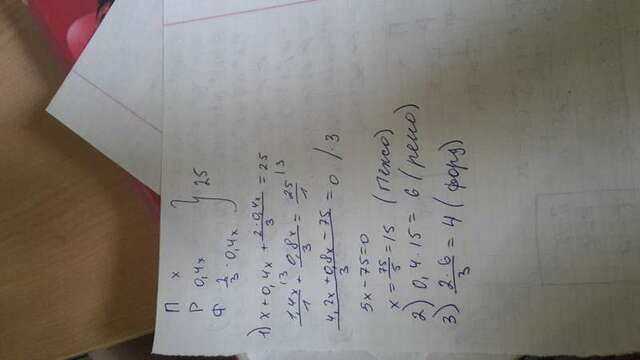 П x
Р 0,4x
Ф 2/3 · 0,4x } 25
1) x + 0,4x + 2·0,4x/3 = 25
1,4x/1 ^(13) + 0,8x/3 = 25/1 ^(13)
4,2x + 0,8x - 75/3 = 0 / · 3
5x - 75 = 0
x = 75/5 = 15 (Пежо)
2) 0,4 · 15 = 6 (рено)
3) 2·6/3 = 4 (форд)